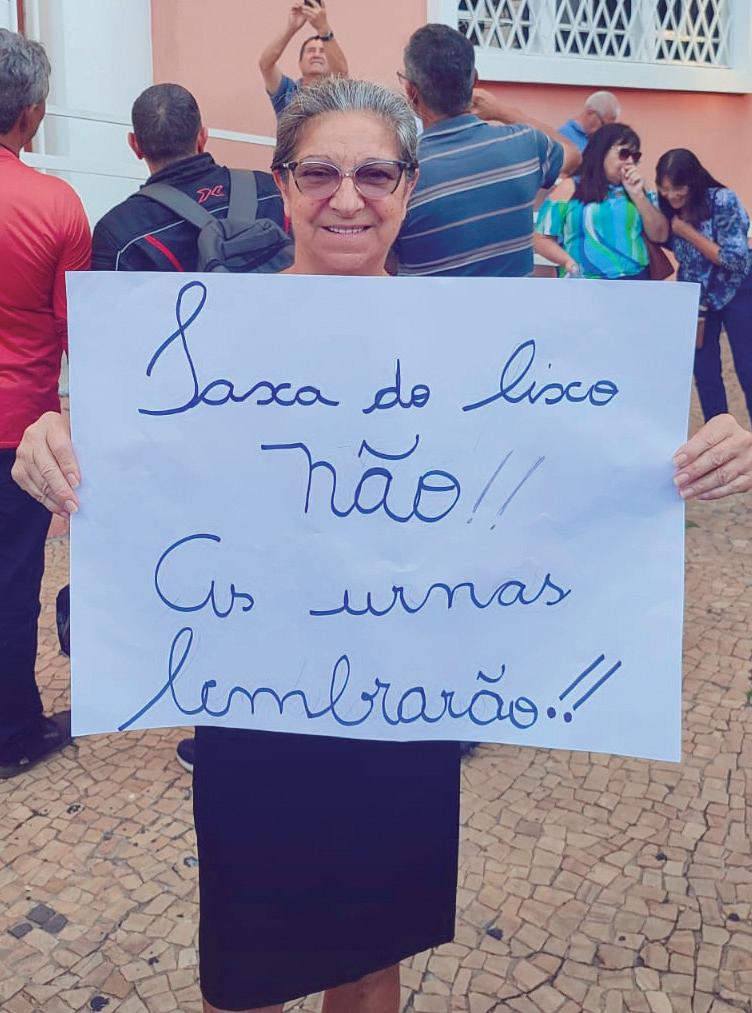 Taxa do lixo
não!!
As urnas
lembrarão!!